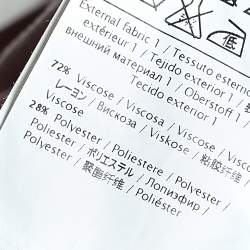 低
External fabric 1 / Tessuto esterno
extérieur 1 / Tejido exterior 1
внешний материал 1 / Oberstoff
Tecido exterior 1
72%
Viscose / Viscosa / Viscose
レーヨン / Вискоза / Viskose / 粘胶纤维
Viscose
28%
Polyester / Poliestere / Polyester /
Poliester / ポリエステル / Полиэфир /
Polyester / 聚酯纤维 / Poliéster